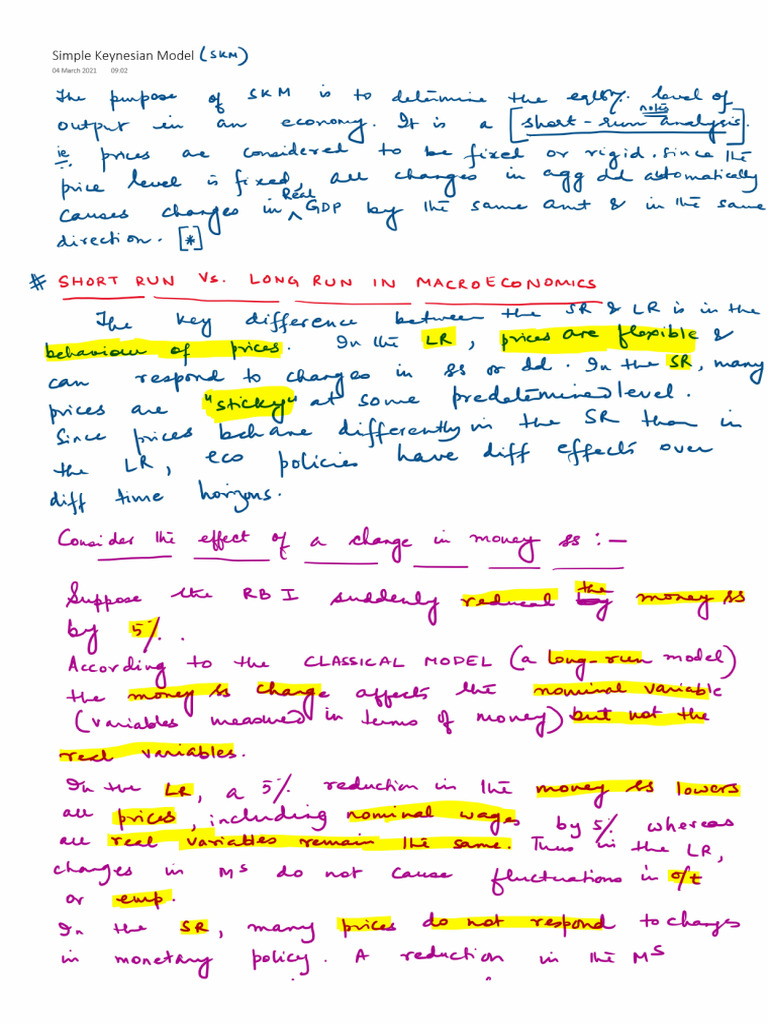 Simple Keynesian Model (SKM)
04 March 2021 09:02
The purpose of SKM is to determine the eqlbm. level of
output in an economy. It is a [short-run analysis].
notes
ie prices are considered to be fixed or rigid. Since the
price level is fixed, all changes in agg dd automatically
causes changes in Real GDP by the same amt & in the same
direction. [*]
# SHORT RUN Vs. LONG RUN IN MACROECONOMICS
The key difference between the SR & LR is in the
behaviour of prices. In the LR, prices are flexible &
can respond to changes in ss or dd. In the SR, many
prices are "sticky" at some predetermined level.
Since prices behave differently in the SR than in
the LR, eco policies have diff effects over
diff time horizons.
Consider the effect of a change in money ss :-
Suppose the RBI suddenly reduced the money ss
by 5%.
According to the CLASSICAL MODEL (a long-run model)
the money ss change affects the nominal variable
(variables measured in terms of money) but not the
real variables.
In the LR, a 5% reduction in the money ss lowers
all prices, including nominal wages by 5% whereas
all real variables remain the same. Thus in the LR,
changes in Ms do not cause fluctuations in o/t
or emp.
In the SR, many prices do not respond to changes
in monetary policy. A reduction in the Ms